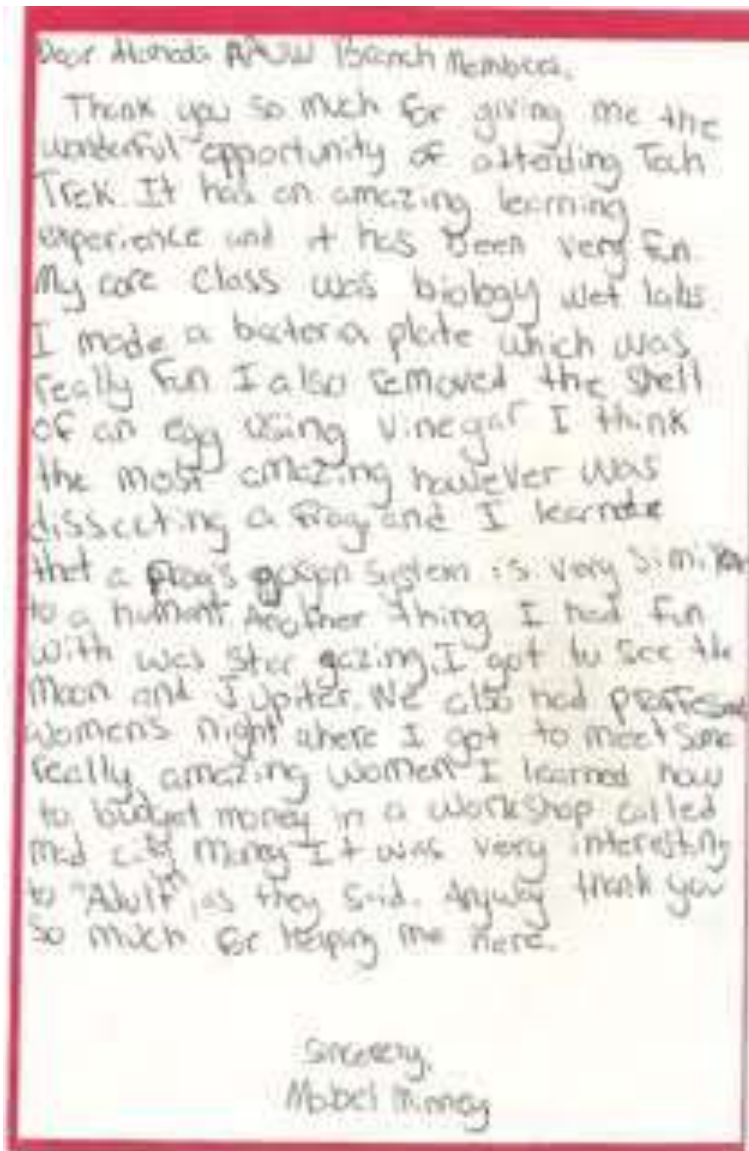 Dear Alameda AAUW Branch Members,
Thank you so much for giving me the
wonderful opportunity of attending Tech
Trek. It has an amazing learning
experience and it has been very fun.
My core class was biology wet labs.
I made a bacteria plate which was
really fun I also removed the shell
of an egg using vinegar I think
the most amazing however was
dissecting a frog and I learned
that a frog's system is very similar
to a human. Another thing I had fun
with was star gazing. I got to see the
Moon and Jupiter. We also had
womens night where I got to meet some
really amazing women I learned how
to budget money in a workshop called
mad city money It was very interesting
to "Adult" as they said. Anyway thank you
so much for helping me here.
Sincerely,
Mabel